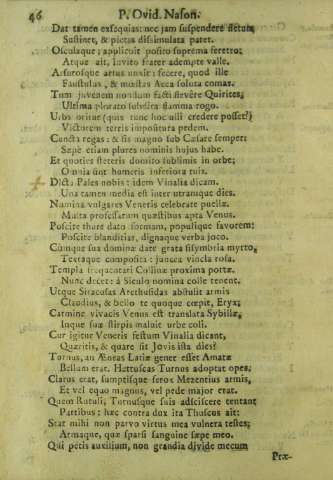 46 P. Ovid. Nason.
Dat tamen exsequias: nec jam suspendere fletum
Sustinet, & pietas dissimulata patet.
Osculaque; applicuit posito suprema feretro;
Atque ait, invito frater adempte vale.
Arsurosque artus unxit: fecere, quod ille
Faustulus, & mœstas Acca soluta comas.
Tum juvenem nondum facti flevere Quirites;
Ultima plorato subdita flamma rogo.
Urbs oritur (quis tunc hoc ulli credere posset?)
Victorem terris impositura pedem.
Cuncta regas: & sis magno sub Cæsare semper:
Sæpè etiam plures nominis hujus habe.
Et quoties steteris domito sublimis in orbe;
Omnia sint humeris inferiora tuis.
Dicta Pales nobis: idem Vinalia dicam.
Una tamen media est inter utramque dies.
Numina vulgares Veneris celebrate puellæ.
Multa professarum quæstibus apta Venus.
Poscite thure dato formam, populique favorem:
Poscite blanditias, dignaque verba joco.
Cumque sua dominæ date grata sisymbria myrto,
Textaque composita: juncea vincla rosa.
Templa frequentari Collinæ proxima portæ
Nunc decet: à Siculo nomina colle tenent.
Utque Siracusas Arethusidas abstulit armis
Claudius, & bello te quoque cœpit, Eryx;
Carmine vivacis Venus est translata Sybillæ,
Inque suæ stirpis maluit urbe coli.
Cur igitur Veneris festum Vinalia dicant,
Quæritis, & quare sit Jovis ista dies?
Tornus, an Æneas Latiæ gener esset Amatæ
Bellum erat. Hettuscas Turnus adoptat opes;
Clarus erat, sumptisque ferox Mezentius armis,
Et vel equo magnus, vel pede major erat.
Quem Rutuli, Turnusque suis adsciscere tentant
Partibus: hæc contra dux ita Thuscus ait:
Stat mihi non parvo virtus mea vulnera testes;
Armaque, quæ sparsi sanguine sæpe meo.
Qui petis auxilium, non grandia divide mecum
Præ-